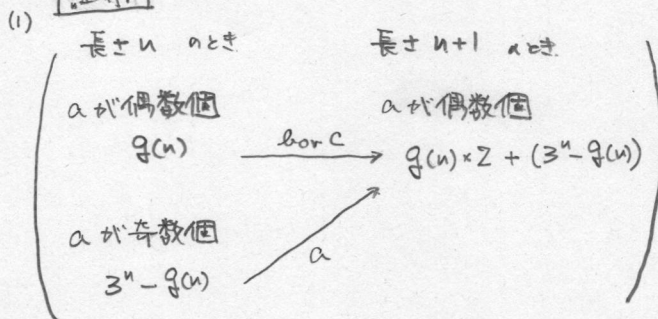 (1)
長さn のとき 長さn+1 のとき
aが偶数個 aが偶数個
g(n) b or c g(n)×2 + (3ⁿ - g(n))
aが奇数個
a
3ⁿ - g(n)